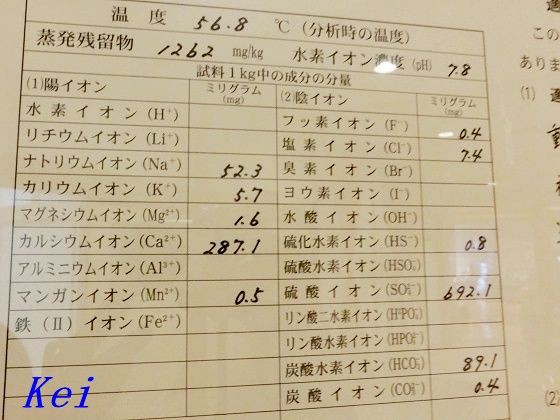 温度 56.8 ℃(分析時の温度)
蒸発残留物 1262 mg/kg 水素イオン濃度(pH) 7.8
試料1kg中の成分の分量
(1)陽イオン ミリグラム(mg)
水素イオン(H⁺)
リチウムイオン(Li⁺)
ナトリウムイオン(Na⁺) 52.3
カリウムイオン(K⁺) 5.7
マグネシウムイオン(Mg²⁺) 1.6
カルシウムイオン(Ca²⁺) 287.1
アルミニウムイオン(Al³⁺)
マンガンイオン(Mn²⁺) 0.5
鉄(Ⅱ)イオン(Fe²⁺)
(2)陰イオン ミリグラム(mg)
フッ素イオン(F⁻) 0.4
塩素イオン(Cl⁻) 7.4
臭素イオン(Br⁻)
ヨウ素イオン(I⁻)
水酸イオン(OH⁻)
硫化水素イオン(HS⁻) 0.8
硫酸水素イオン(HSO₄⁻)
硫酸イオン(SO₄²⁻) 692.1
リン酸二水素イオン(H²PO₄⁻)
リン酸水素イオン(HPO₄²⁻)
炭酸水素イオン(HCO₃⁻) 89.1
炭酸イオン(CO₃²⁻) 0.4
この
ありま
(1)
(2)
Kei